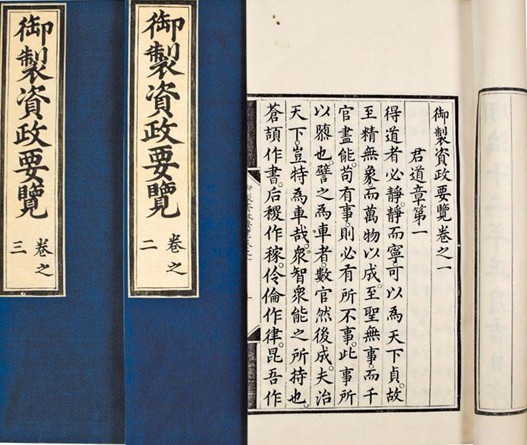 御製資政要覽
卷之
三
御製資政要覽
卷之
二
御製資政要覽卷之一
君道章第一
得道者必靜。靜而寧可以為天下貞。故
至精無象而萬物以成。至聖無事而千
官盡能。苟有事則必有所不事。此事所
以隳也。譬之為車者數官然後成。夫治
天下豈特為車哉。衆智衆能之所持也。
蒼頡作書。后稷作稼。伶倫作律。昆吾作